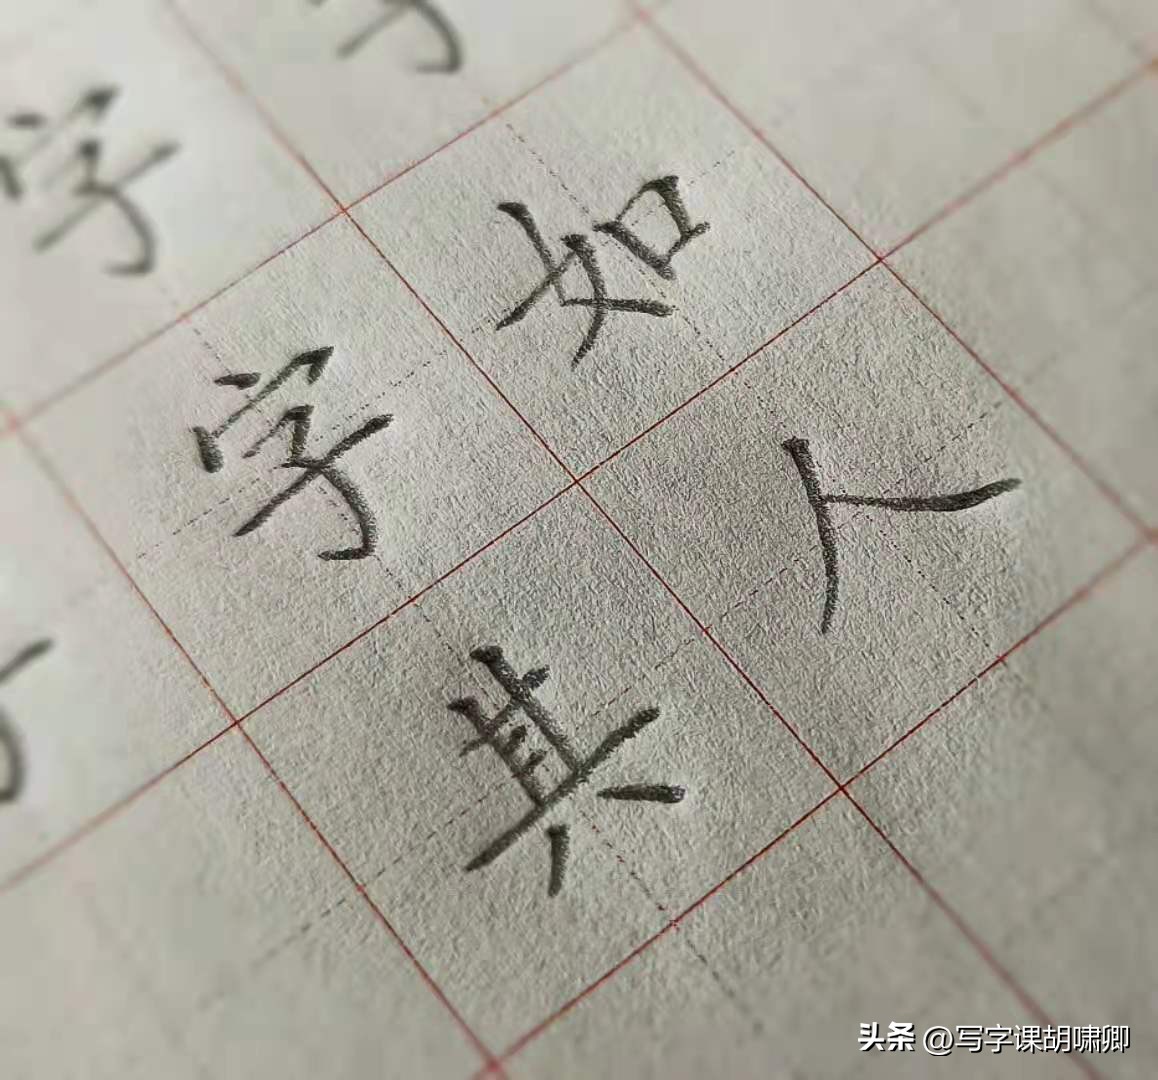 字如
其人
头条 @写字课胡啸卿